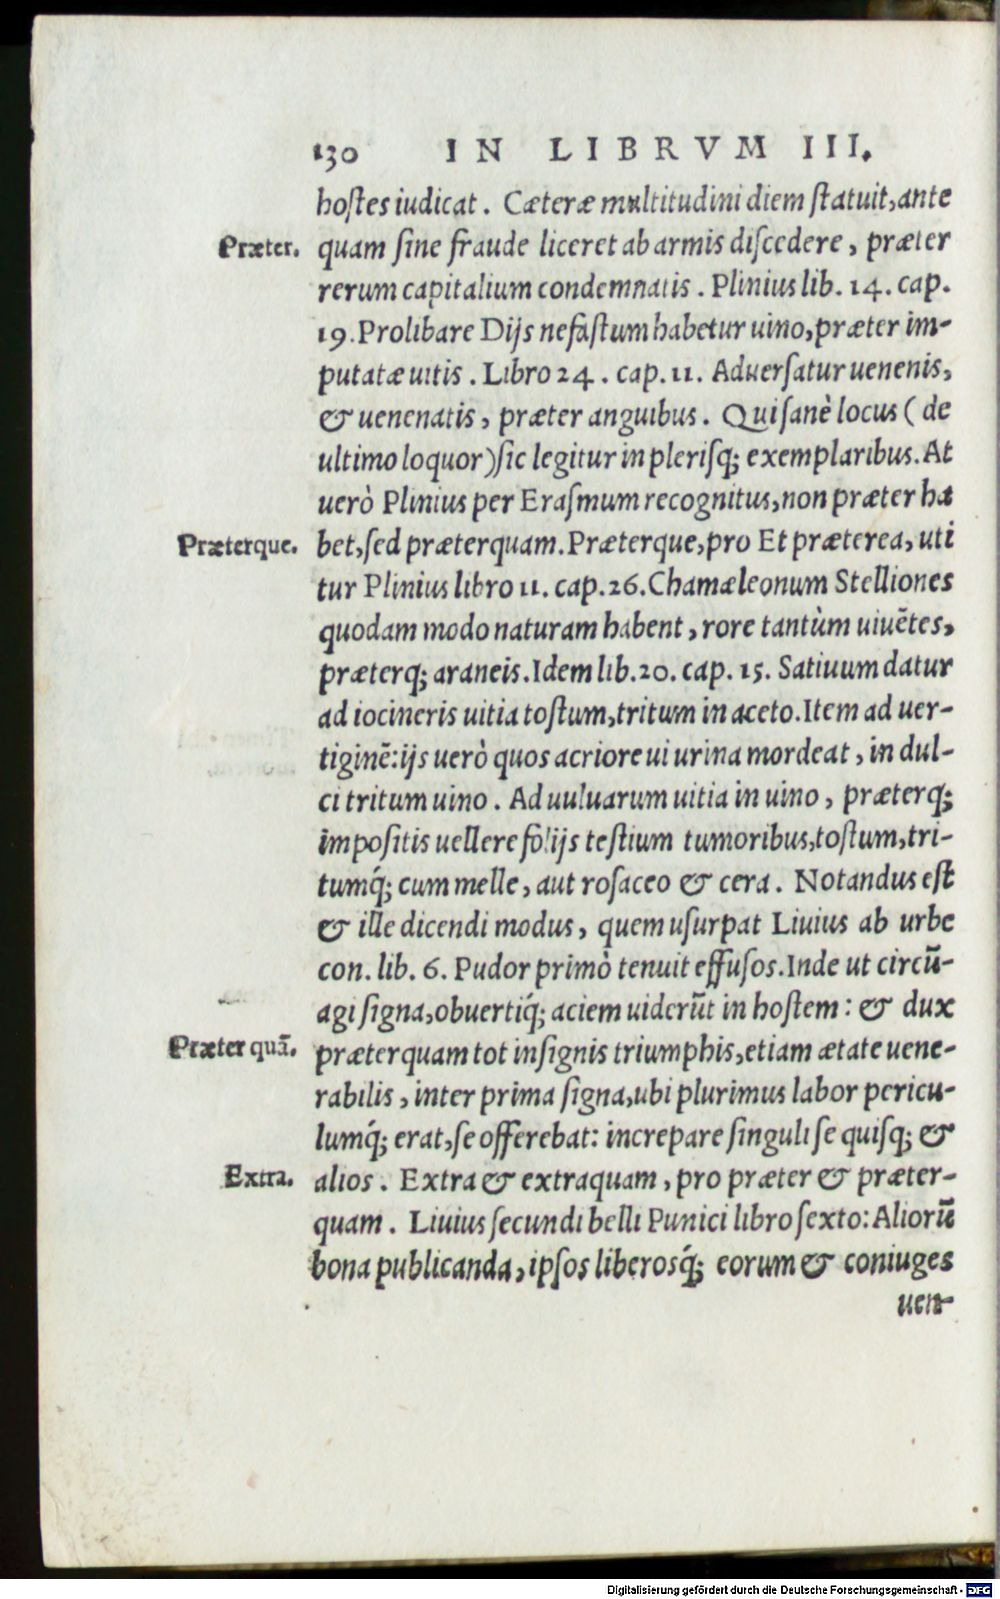 130 IN LIBRVM III.
hoſtes iudicat. Cæteræ multitudini diem ſtatuit, ante
Præter. quam ſine fraude liceret ab armis diſcedere, præter
rerum capitalium condemnatis. Plinius lib. 14. cap.
19. Prolibare Dijs nefaſtum habetur uino, præter im-
putatæ uitis. Libro 24. cap. 11. Aduerſatur uenenis,
& uenenatis, præter anguibus. Qui ſanè locus (de
ultimo loquor) ſic legitur in pleriſq; exemplaribus. At
uerò Plinius per Eraſmum recognitus, non præter ha
Præterque. bet, ſed præterquam. Præterque, pro Et præterea, uti
tur Plinius libro 11. cap. 26. Chamæleonum Stelliones
quodam modo naturam habent, rore tantùm uiuẽtes,
præterq; araneis. Idem lib. 20. cap. 15. Satiuum datur
ad iocineris uitia toſtum, tritum in aceto. Item ad uer-
tiginẽ: ijs uerò quos acriore ui urina mordeat, in dul-
ci tritum uino. Ad uuluarum uitia in uino, præterq;
impoſitis uellere folijs teſtium tumoribus, toſtum, tri-
tumq́; cum melle, aut roſaceo & cera. Notandus eſt
& ille dicendi modus, quem uſurpat Liuius ab urbe
con. lib. 6. Pudor primò tenuit effuſos. Inde ut circũ-
agi ſigna, obuertiq́; aciem uiderũt in hoſtem: & dux
Præter quã. præterquam tot inſignis triumphis, etiam ætate uene-
rabilis, inter prima ſigna, ubi plurimus labor pericu-
lumq́; erat, ſe offerebat: increpare ſinguli ſe quiſq; &
Extra. alios. Extra & extraquam, pro præter & præter-
quam. Liuius ſecundi belli Punici libro ſexto: Aliorũ
bona publicanda, ipſos liberosq́; eorum & coniuges
uen-
Digitalisierung gefördert durch die Deutsche Forschungsgemeinschaft - DFG